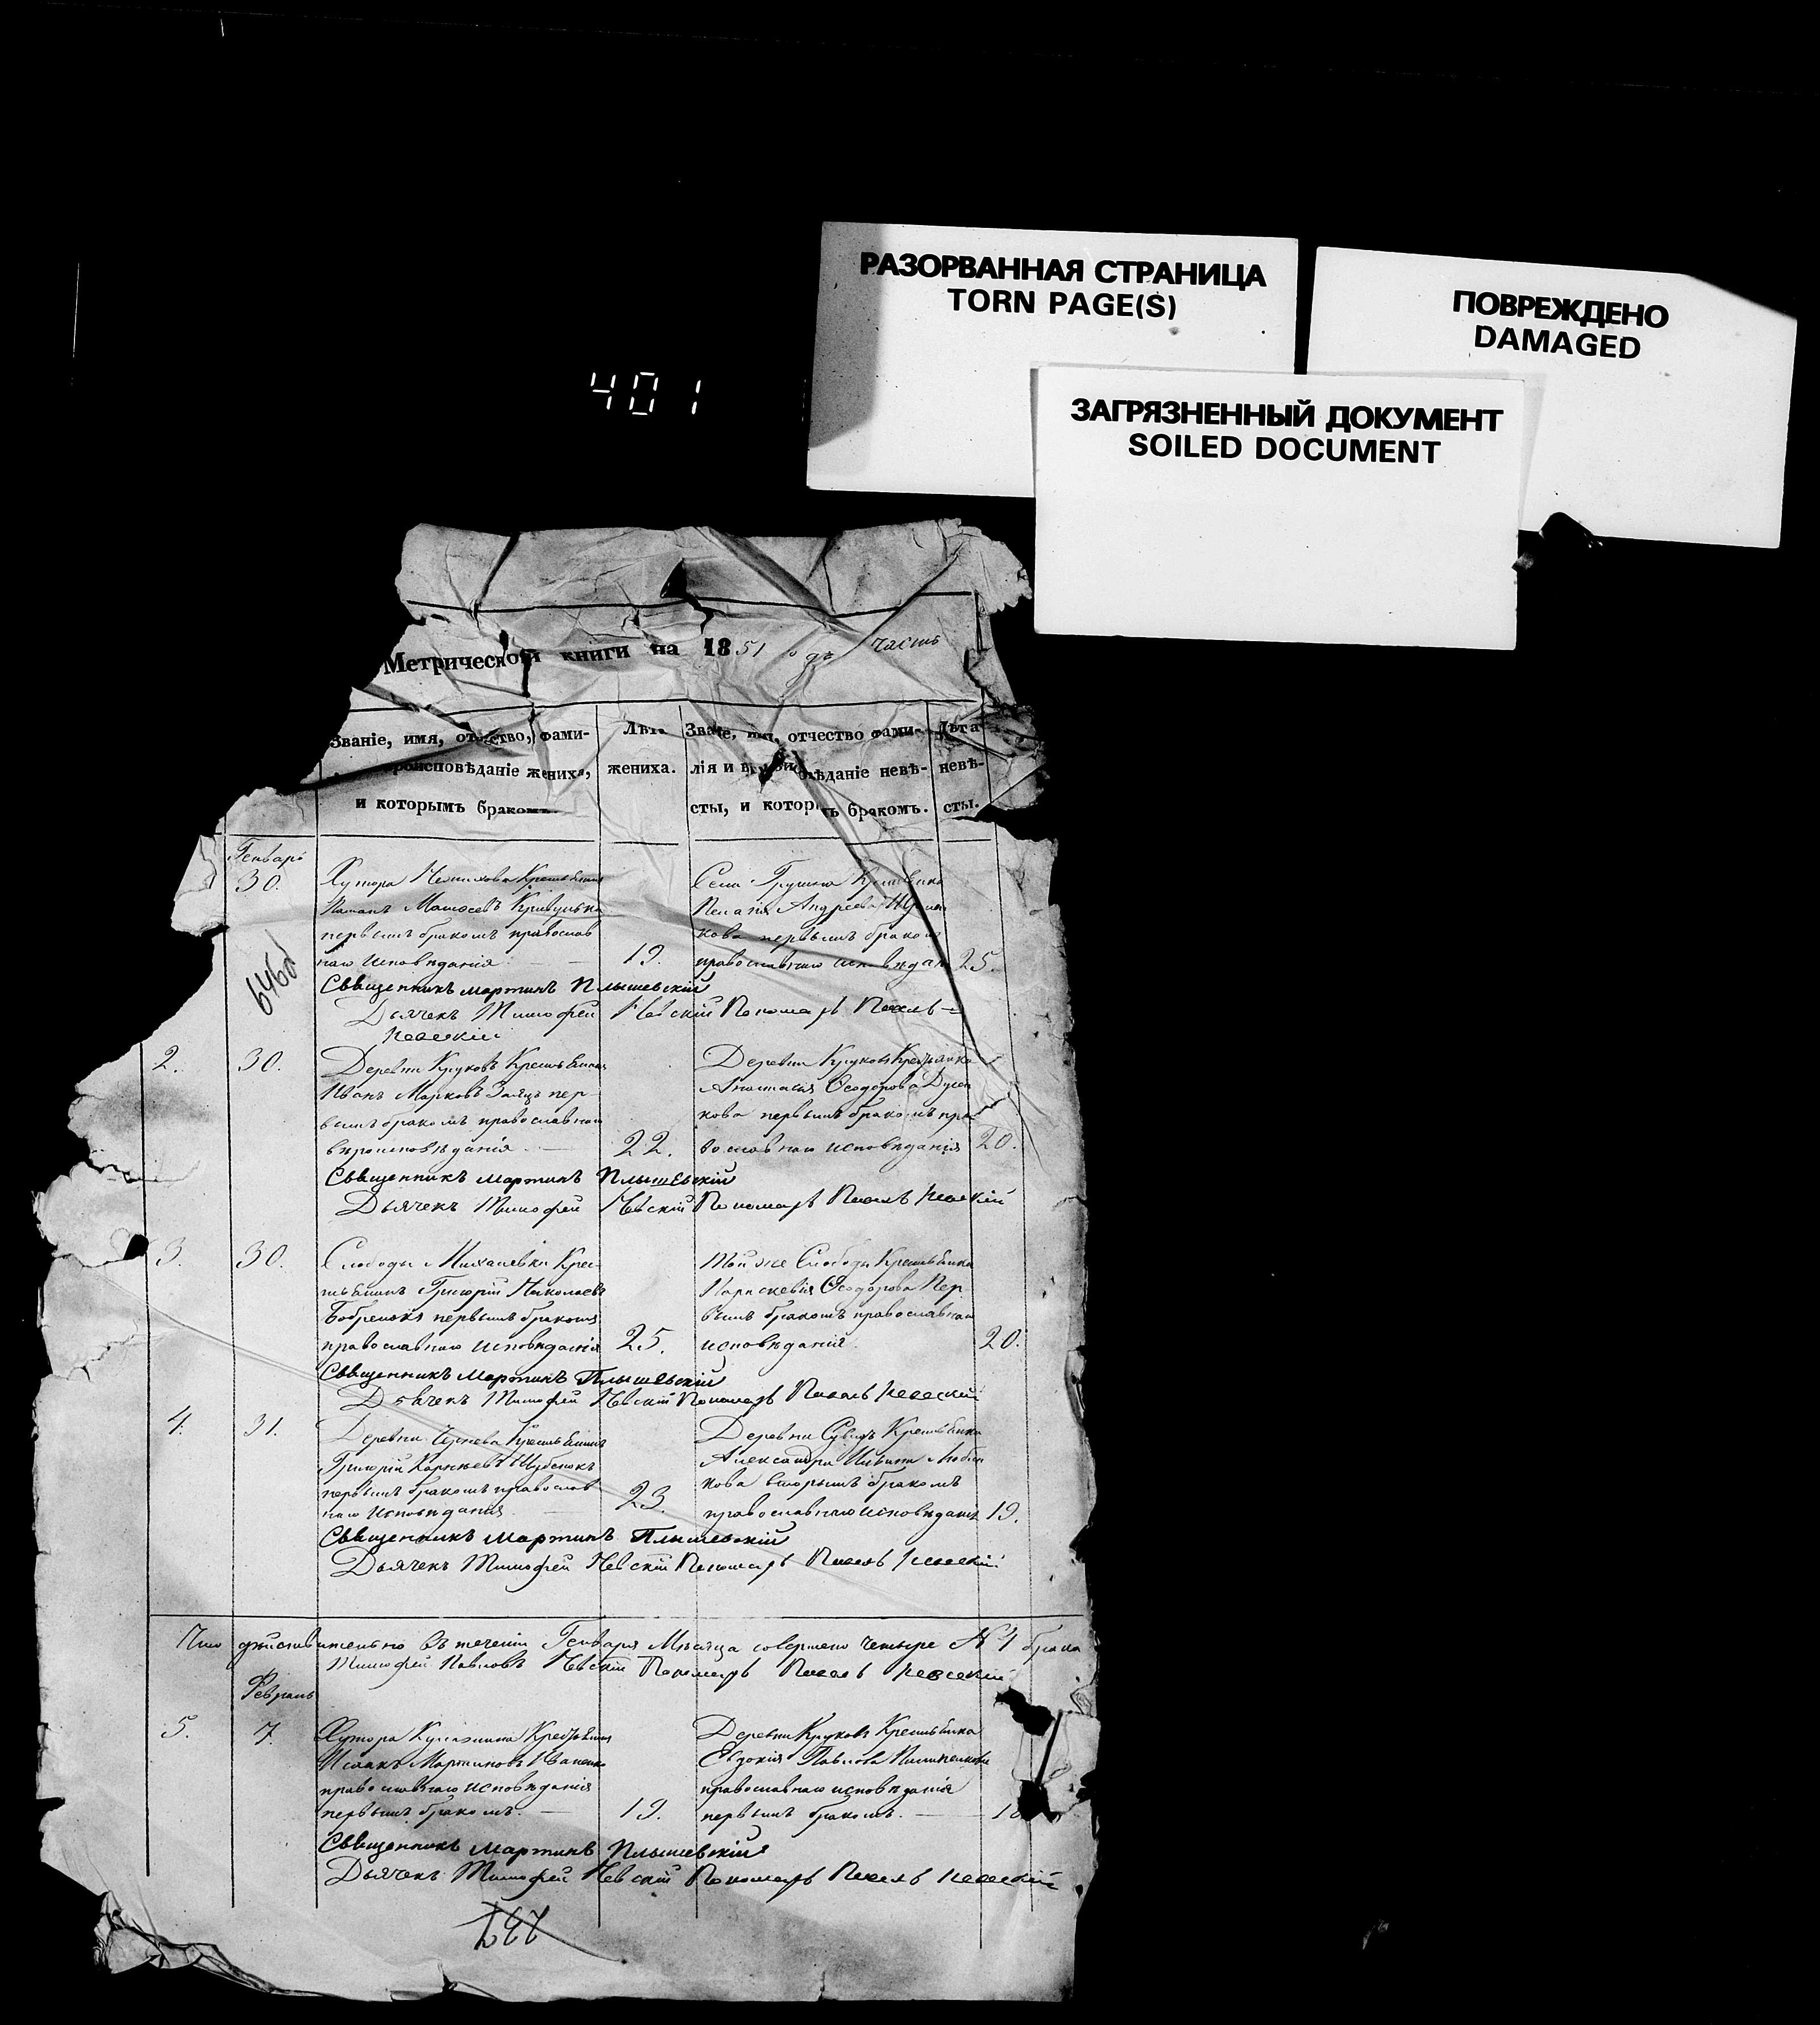 РАЗОРВАННАЯ СТРАНИЦА
TORN PAGE(S)
ПОВРЕЖДЕНО
DAMAGED
ЗАГРЯЗНЕННЫЙ ДОКУМЕНТ
SOILED DOCUMENT
401
Метрической книги на 1851 годъ часть
Званіе, имя, отчество, фами-
роисповѣданіе жениха,
и которымъ бракомъ
Лѣта
жениха.
отчество фами-
лія и вѣданіе невѣ-
сты, и котор бракомъ.
Лѣта
невѣ-
сты.
Генварь
30.
Хутора Крестьянинъ
Матѳеевъ
первымъ бракомъ православ
наго исповѣданія
19.
Села Грушки Крестьянка
Пелагія Андреева
кова первымъ бракомъ
православнаго исповѣдан
25.
Священникъ Мартинъ Плышевскій
Дьячекъ Тимофей Невскій Пономарь Павелъ
Невскій
646об
2.
30.
Деревни Круковъ Крестьянинъ
Иванъ Марковъ Заяцъ пер-
вымъ бракомъ православнаго
вѣроисповѣданія
22.
Деревни Круковъ Крестьянка
Анастасія Ѳеодорова
кова первымъ бракомъ пра
вославнаго исповѣданія
20.
Священникъ Мартинъ Плышевскій
Дьячекъ Тимофей Невскій Пономарь Павелъ Невскій
3.
30.
Слободы Михаиловки Крес
тьянинъ Григорій Николаевъ
первымъ бракомъ
православнаго исповѣданія
25.
той же Слободы Крестьянка
Параскевія Ѳеодорова Пер
вымъ бракомъ православнаго
исповѣданія
20.
Священникъ Мартинъ Плышевскій
Дьячекъ Тимофей Невскій Пономарь Павелъ Невскій
4.
31.
Деревни Крестьянинъ
Григорій Корнѣевъ
первымъ бракомъ православ
наго исповѣданія
23.
Деревни Крестьянка
Александра
кова вторымъ бракомъ
православнаго исповѣданія
19.
Священникъ Мартинъ Плышевскій
Дьячекъ Тимофей Невскій Пономарь Павелъ Невскій
Что дѣйствительно въ теченіи Генваря Мѣсяца совершено четыре № 4 брака
Тимофей Павловъ Невскій Пономарь Павелъ Невскій
Февраль
5.
7.
Хутора Крестьянинъ
Исаакъ Мартиновъ Иваненко
православнаго исповѣданія
первымъ бракомъ.
19.
Деревни Круковъ Крестьянка
Евдокія Павлова
православнаго исповѣданія
первымъ бракомъ.
Священникъ Мартинъ Плышевскій
Дьячекъ Тимофей Невскій Пономарь Павелъ Невскій